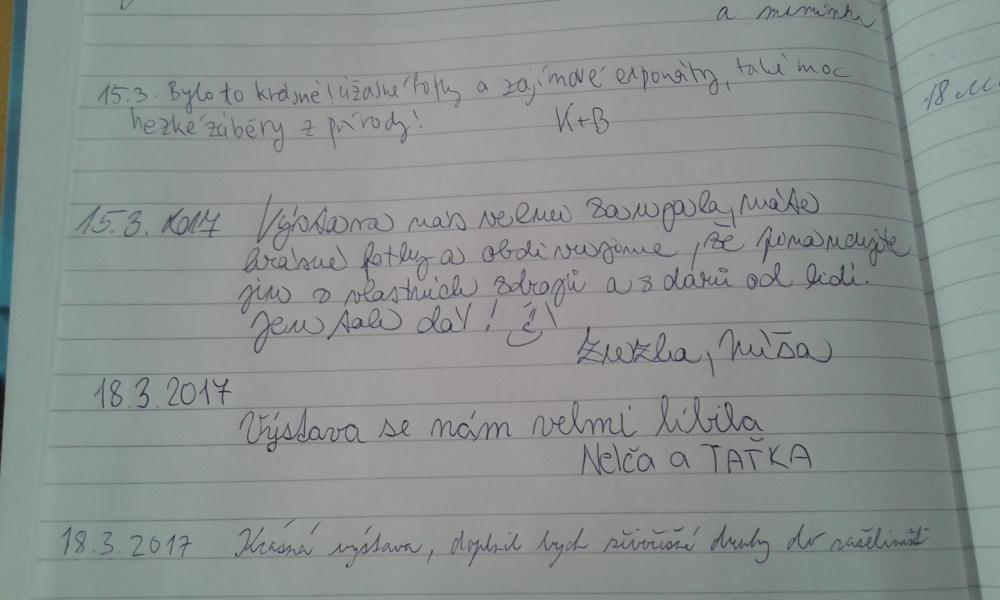 a mamince
15.3. Bylo to krásné! úžasné fotky a zajímavé exponáty, také moc
hezké záběry z přírody! K+B
15.3. 2017 Výstava nás velmi zaujala, máte
krásné fotky a obdivujeme, že pomahujete
jim z vlastních zdrojů a z darů od lidí.
Jen tak dál!
Zuzka, Míša
18.3.2017
Výstava se nám velmi líbila
Nelča a TAŤKA
18.3.2017 Krásná výstava, doplnil bych živočišné druhy do rašelinišť
18